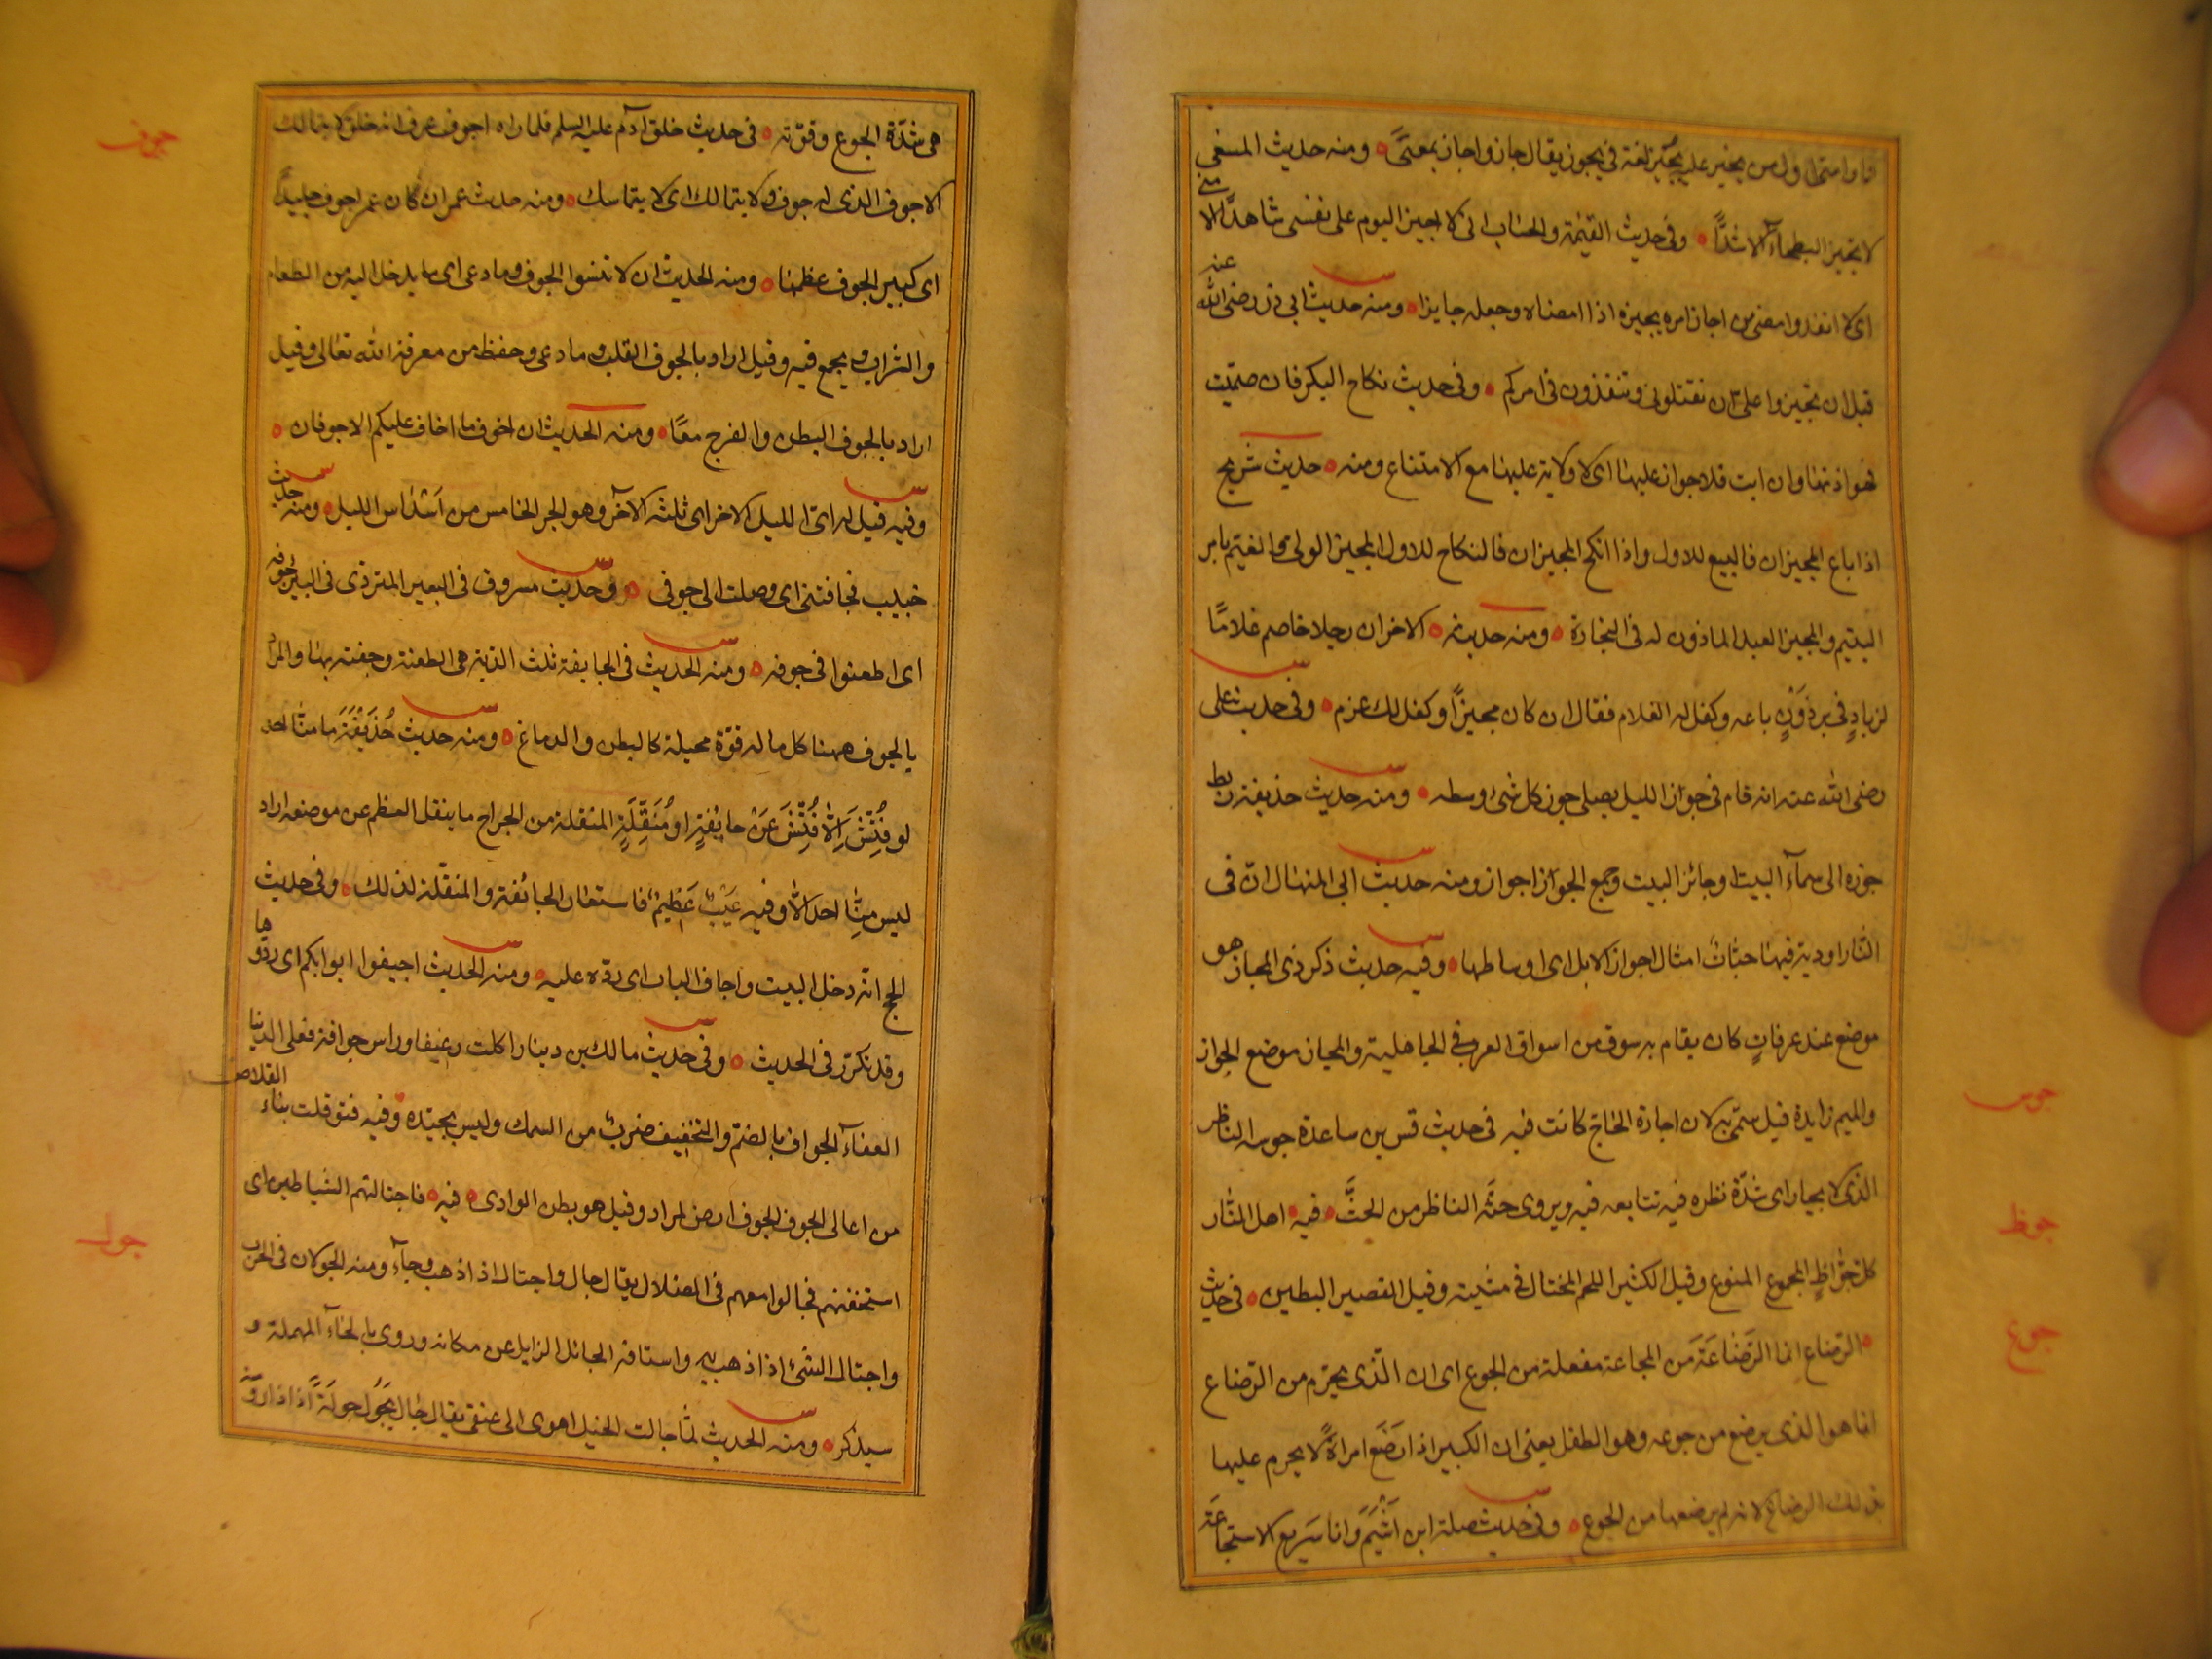 وا وامتى اول من يجيز عليه يُجيز لغة فى يجوز يقال جاز واجاز بمعنىً ومنه حديث المسعى
لا تجيز البطحاء الا شدًّا وفى حديث القيٰمة والحساب انى لا اجيز اليوم على نفسى شاهدًا الا منى
اى لا انفذ وامضى من اجاز امره يجيزه اذا امضاه وجعله جايزا ومنه حديث ابى ذر رضى الله عنه
قبل ان تجيزوا علىّ ان تقتلونى وتنفذون فى امركم وفى حديث نكاح البكر فان صمتت
فهو اذنها وان ابت فلا جواز عليها اى لا ولاية عليها مع الامتناع ومنه حديث شريح
اذا باع المجيزان فالبيع للاول واذا انكح المجيزان فالنكاح للاول المجيز الولى والقيّم بامر
اليتيم والمجيز العبد الماذون له فى التجارة ومنه حديثه الاخر ان رجلا خاصم غلامًا
لزيادٍ فى برذَوْنٍ باعه وكفل له الغلام فقال ان كان مجيزًا وكفل لك غرم وفى حديث على
رضى الله عنه انه قام فى جواز الليل يصلى جوز كل شئ وسطه ومنه حديث حذيفة ربط
جوزه الى سماء البيت او جائز البيت وجمع الجوَاز اجواز ومنه حديث ابى المنهال ان فى
النار اودية فيها حيّات امثال اجواز الابل اى اوساطها وفيه حديث ذكر ذى المجاز هو
موضع عند عرفاتٍ كان يقام به سوق من اسواق العرب فى الجاهلية والمجاز موضع الجواز
والميم زايدة قيل سمّى به لان اجازة الحاج كانت فيه فى حديث قس بن ساعدة جوسه الناظر
الذى لا يحار اى شدّة نظره فيه تتابعه فيه ويروى حثّه الناظر من الحثّ فيه اهل النار
كل جوّاظٍ الجموع المنوع وقيل الكثير اللحم المختال فى مشيته وقيل القصير البطين فى حديث
الرضاع انما الرَضَاعَة مَن المجاعة مفعلة من الجوع اى ان الّذى يحرّم من الرّضاع
انما هو الذى يرضع من جوعه وهو الطفل يعنى ان الكبير اذا رَضَع امراةً لا يحرم عليها
بذلك الرضاع لانه لم يرضعها من الجوع وفى حديث صلة ابن اَشْيَمَ وانا سَريع الاستجاعَة
جوس
جوظ
جوع
هى شدّة الجوع وقوّته فى حديث خلق آدم عليه السلم فلما راه اجوف عرف انه خلق لا يتمالك
الاجوف الذى له جوف ولا يتمالك اى لا يتماسك ومنه حديث عمران كان عمر اجوف جليدًا
اى كبير الجوف عظيمها ومنه الحديث ان لا تنسوا الجوف وما وعى اى ما يدخل اليه من الطعام
والشراب ويجمع فيه وقيل اراد بالجوف القلب وما وعى وحفظ من معرفة الله تعالى وقيل
اراد بالجوف البطن والفرج معًا ومنه الحديث ان اخوف ما اخاف عليكم الاجوفان
وفيه قيل له اىّ الليل الاخر اى ثلثه الآخر وهو الجز الخامس من اَسْدَاس الليل ومنه حديث
خبيب فجافتنى اى وصلت الى جوفى وفى حديث مسروق فى البعير المتردّى فى البئر جوفوه
اى اطعنوا فى جوفه ومنه الحديث فى الجايفة ثلث الدية هى الطعنة وجفته بها والمراد
بالجوف ههنا كل ما له قوّة محيلة كالبطن والدماغ ومنه حديث حُذَيْفَةَ ما منا احد
لو فُتِّشَ اِلّا فُتِّشَ عَنْ جايفَةٍ او مُنَقِّلَةٍ المنقلة من الجراح ما ينقل العظم عن موضعه اراد
ليس مِنّا احد الا وفيه عَيْبٌ عَظِيمٌ فاستعار الجائفة والمنقّلة لذلك وفى حديث
الحج انّه دخل البيت واجاف الباب اى ردّه عليه ومنه الحديث اجيفوا ابوابكم اى ردّوها
وقد تكرّر فى الحديث وفى حديث مالك بن دينار اكلت رغيفا وراس جوافة فعلى الدنيا
العفاء الجواف بالضمّ والتخفيف ضربٌ من السمك وليس بجيّده وفيه فتوقلت بناء القلاص
من اعالى الجوف الجوف ارض لمراد وقيل هو بطن الوادى فيه فاجتالتهم الشياطين اى
استخفتهم فجالوا معهم فى الضلال يقال جال واجتال اذا ذهب وجاء ومنه الجولان فى الحرب
واجتال الشئ اذا ذهب به واستاقه الجائل الزايل عن مكانه وروى بالحاء المهملة و
سيذكر ومنه الحديث لمّا جالت الخيل اهوى الى عنقى يقال جال يَجُول جولَةً اذا دار ومنه
جوف
جول